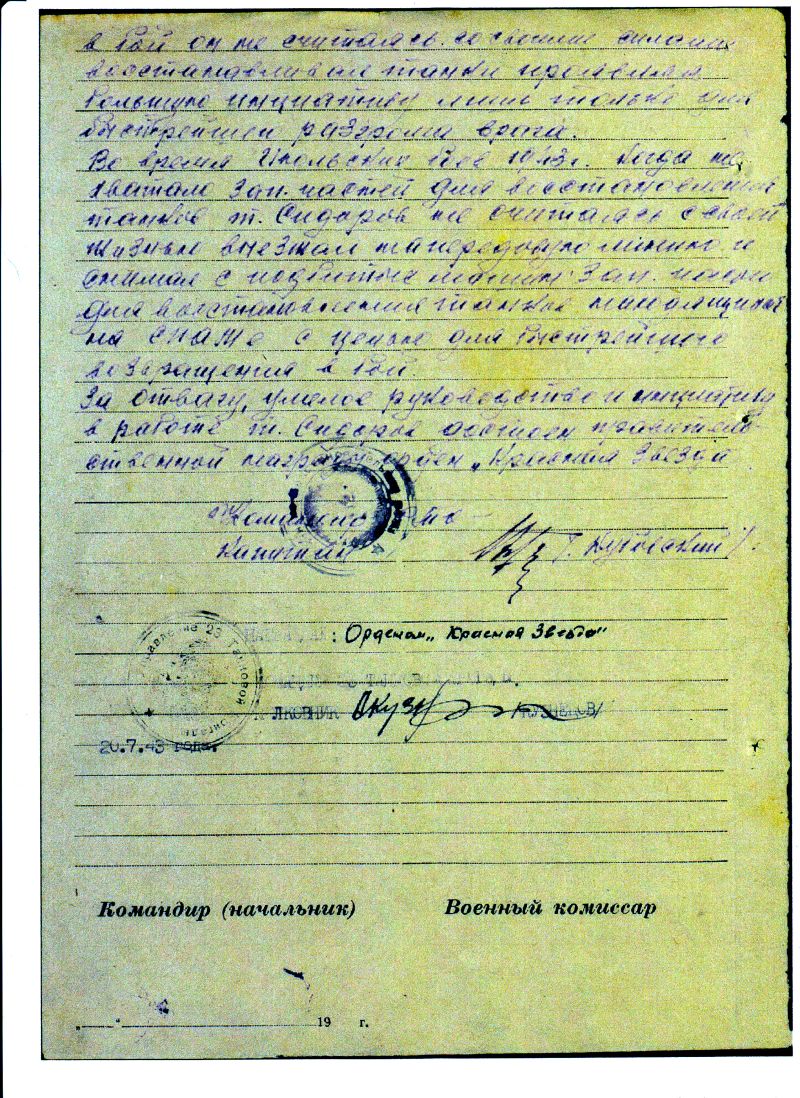 в бой он не считаясь со своими силами
восстанавливал танки проявлял
большую инициативу лишь только для
быстрейшей разгрома врага.
Во время Июльских боев 1943 г. когда не
хватало зап. частей для восстановления
танков т. Сидоров не считаясь с своей
жизнью выезжал на передовую линию и
снимал с подбитых машин зап. части
для восстановления танков находящихся
на СПАМе с целью для быстрейшего
возвращения в бой.
За отвагу, умелое руководство и инициативу
в работе т. Сидоров достоин правитель-
ственной награды орден „Красная Звезда
Капитан
: Орденом „Красная Звезда"
управление 23 танковой
КУЗНЕЦОВ/
20.7.43 года.
Командир (начальник) Военный комиссар
„ " 19 г.